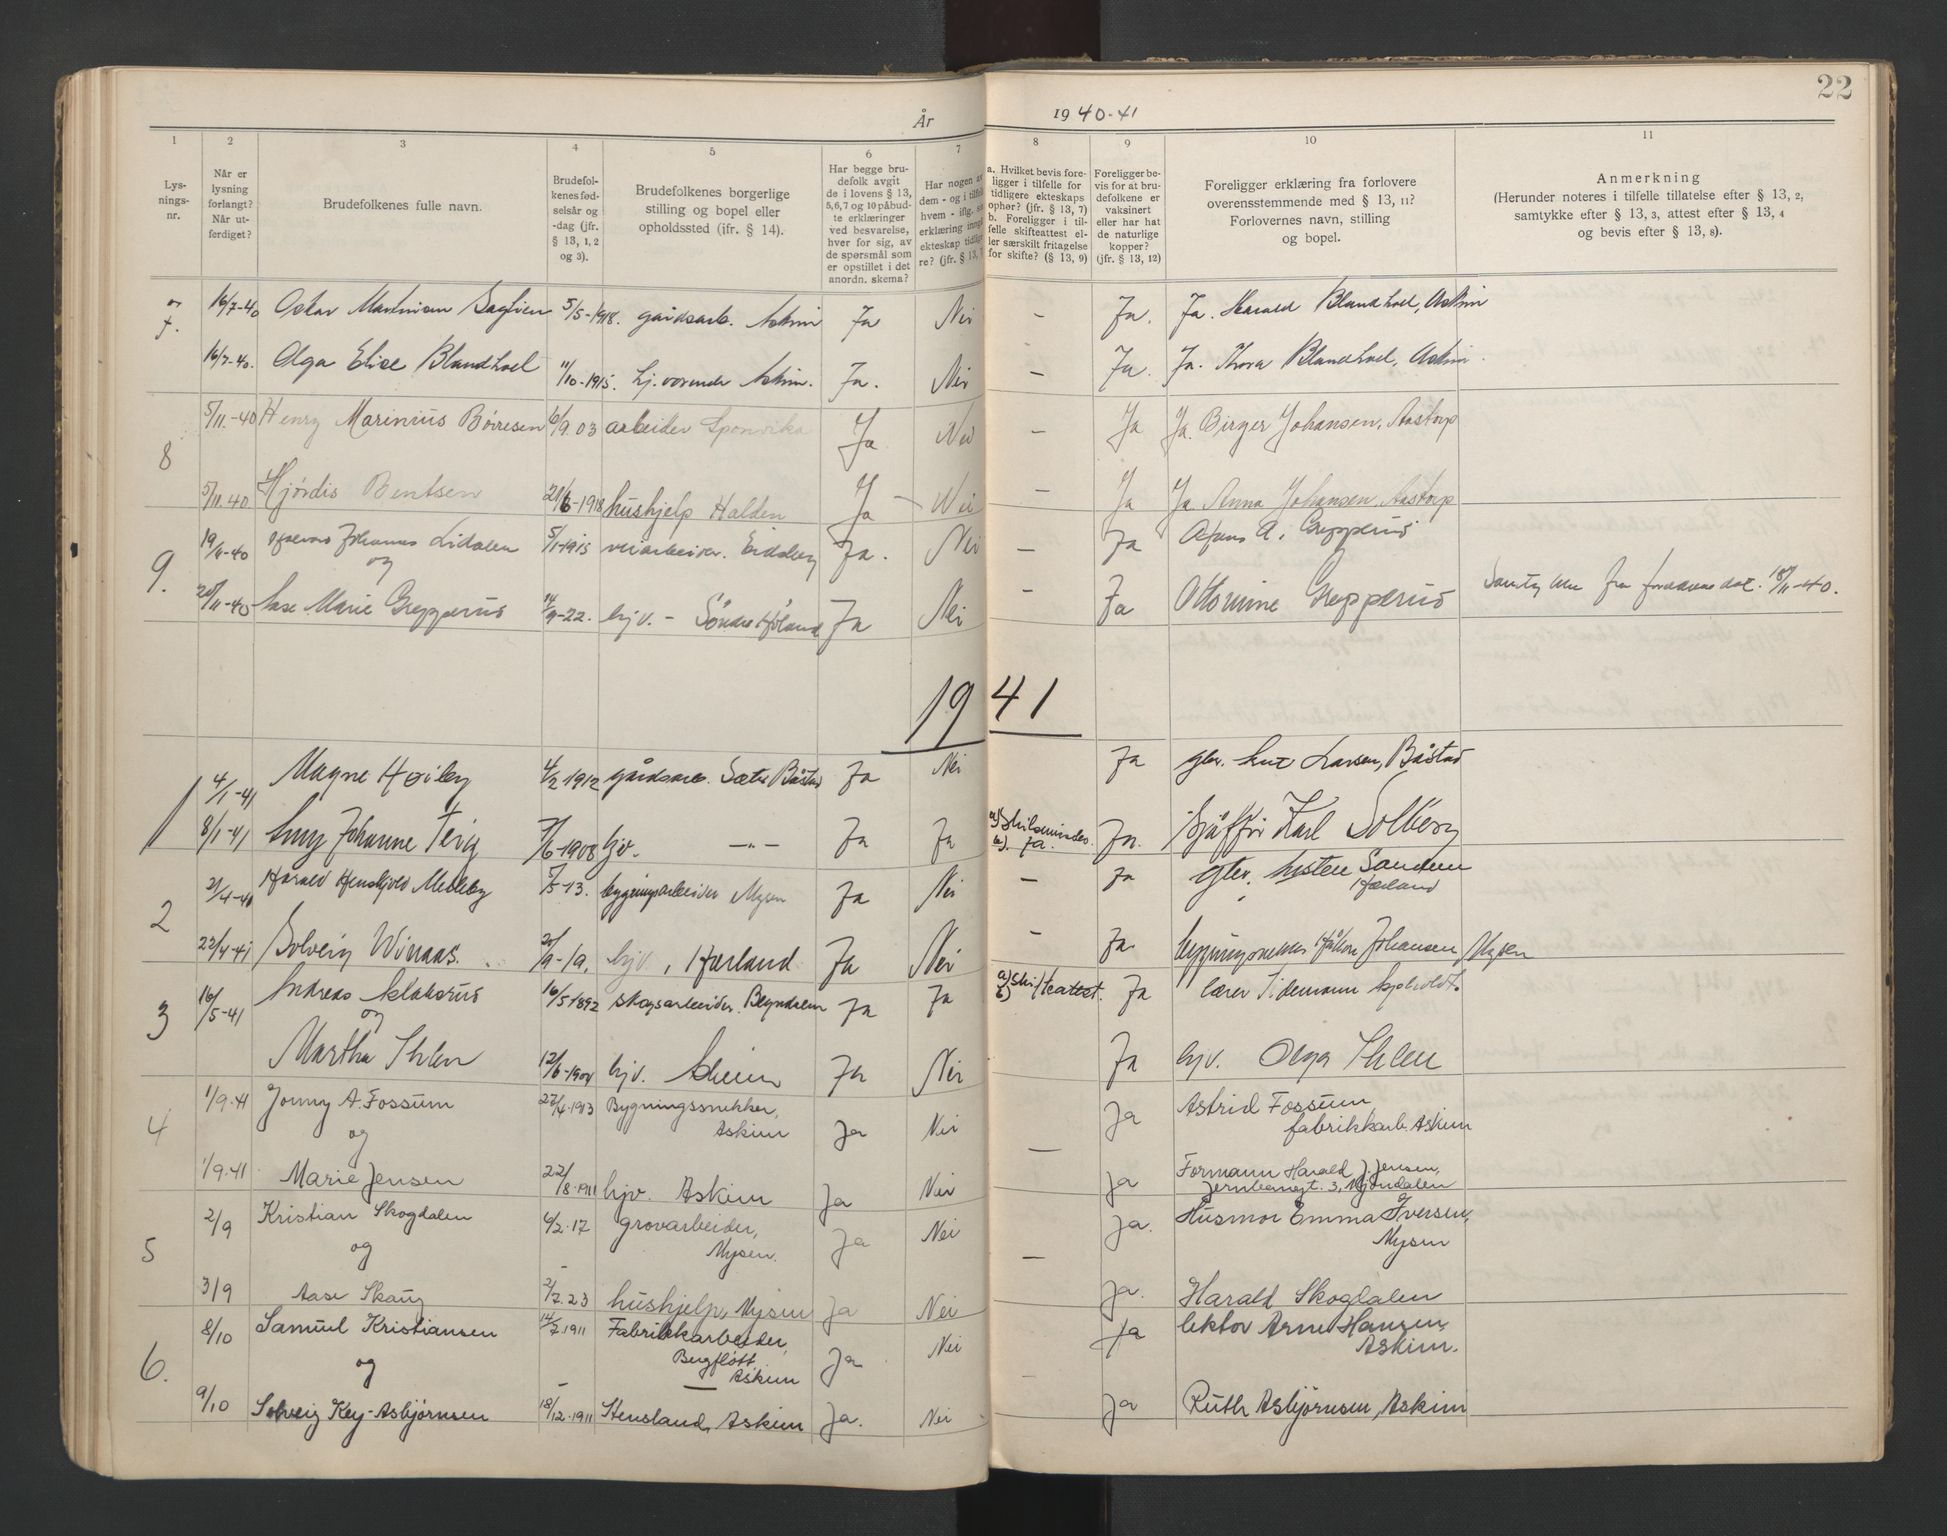 22
År 1940-41
1 2 3 4 5 6 7 8 9 10 11
Lys-
nings-
nr.
Når er
lysning
forlangt?
Når ut-
ferdiget?
Brudefolkenes fulle navn.
Brudefol-
kenes fød-
selsår og
-dag (jfr.
§ 13, 1, 2
og 3).
Brudefolkenes borgerlige
stilling og bopel eller
opholdssted (ifr. § 14).
Har begge bru-
defolk avgit
de i lovens § 13,
5,6,7 og 10 påbud-
te erklæringer
ved besvarelse,
hver for sig, av
de spørsmål som
er opstillet i det
anordn. skema?
Har nogen av
dem - og i tilfelle
hvem - iflg.
erklæring inngå
ekteskap tidlige-
re? (jfr. § 13,
a. Hvilket bevis fore-
ligger i tilfelle for
tidligere ekteskaps
ophør? (jfr. § 13, 7)
b. Foreligger i til-
felle skifteattest el-
ler særskilt fritagelse
for skifte? (§ 13, 9)
Foreligger be-
vis for at bru-
defolkene er
vaksinert
eller har hat
de naturlige
kopper?
(jfr. § 13, 12)
Foreligger erklæring fra forlovere
overensstemmende med § 13, 11?
Forlovernes navn, stilling
og bopel.
Anmerkning
(Herunder noteres i tilfelle tillatelse efter § 13, 2,
samtykke efter § 13, 3, attest efter § 13, 4
og bevis efter § 13, 8).
7. 16/7-40 Oskar Martinisen 5/5-1918. gårdsarb. Askim Ja Nei — Ja. Ja. Harald Blandhoel, Askim
16/7-40. Olga Elise Blandhoel 11/10-1915. hj.værende Askim. Ja. Nei — Ja. Ja. Thora Blandhoel, Askim.
8 5/11.-40 Henry Marinius Børresen 6/9.03 arbeider Sponvika Ja Nei — Ja Ja. Birger Johansen, Aastorp
5/11.40 Hjørdis Bentsen 1918 hushjelp Halden Ja Nei — Ja Ja Anna Johansen, Aastorp
9. 19/11-40 Johannes Lidalen 5/1-1915 veiarbeider. Eidsberg Ja. Nei — Ja A. Grepperud
og
20/11-40 Aase Marie Grepperud 14/9-22. hjv. — Søndre Høland Ja Nei — Ja Ottomine Grepperud Samtykke fra foreldrene dat. 18/11-40.
1941
1 4/1-41 Magne Høiby 4/2 1912 gårdsarb. Sæter Båstad Ja Nei Ja gbr. Larsen, Båstad
8/1-41 Johanne Teig 7/6-1908 hjv. —„— Ja Ja a) Skilsmisse b). Ja. Ja. Sjåffør Karl Solberg
2 21/4-41 Harald Melleby 7/5-13. bygningsarbeider Mysen Ja Nei — Ja gbr. Kristen Sandem
Hærland
22/4-41 Solveig Winaas. 9-19. hjv., Hærland Ja Nei — Ja. Håkon Johansen, Mysen
3 16/5-41 Andreas 16/5 1892 skogsarbeider. Ja Ja a) b) Skifteatest. Ja lærer Tidemann
og
Martha Ihlen 12/6-190 hjv. Askim Ja Nei Ja hjv. Olga Ihlen
4 1/9.41 Jonny A. Fossum 27/4.1913 Bygningssnekker,
Askim Ja Nei — Ja Astrid Fossum
fabrikkarb. Askim
og
1/9.41 Marie Jensen 22/8.1911 hjv. Askim Ja Nei Ja Formann Harald J. Jensen,
3, Mjøndalen
5 2/9 Kristian Skogdalen 6/2.17 grovarbeider,
Mysen. Ja Nei — Ja. Husmor Emma Iversen,
Mysen
og
3/9 Aase Skaug 2/7.23 hushjelp, Mysen Ja Nei Ja. Harald Skogdalen
6. 8/10 Samuel Kristiansen 14/7.1911 Fabrikkarbeider,
Bergfløtt
Askim Ja Nei Ja lektor Arne Hansen,
Askim.
og
9/10 Solveig Key-Asbjørnsen 18/12.1911 Stensland, Askim Ja. Nei Ja Ruth Asbjørnsen, Askim